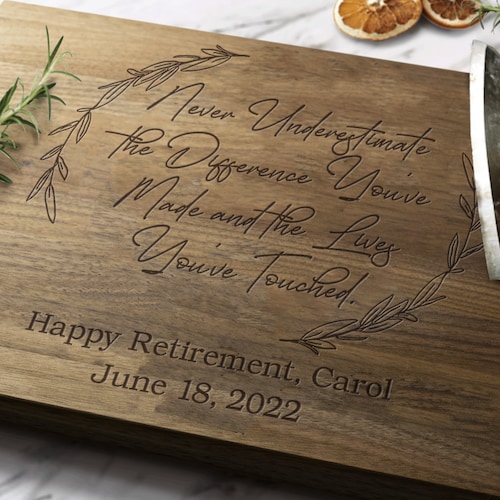 Never Underestimate
the Difference You've
Made and the Lives
You've Touched.
Happy Retirement, Carol
June 18, 2022